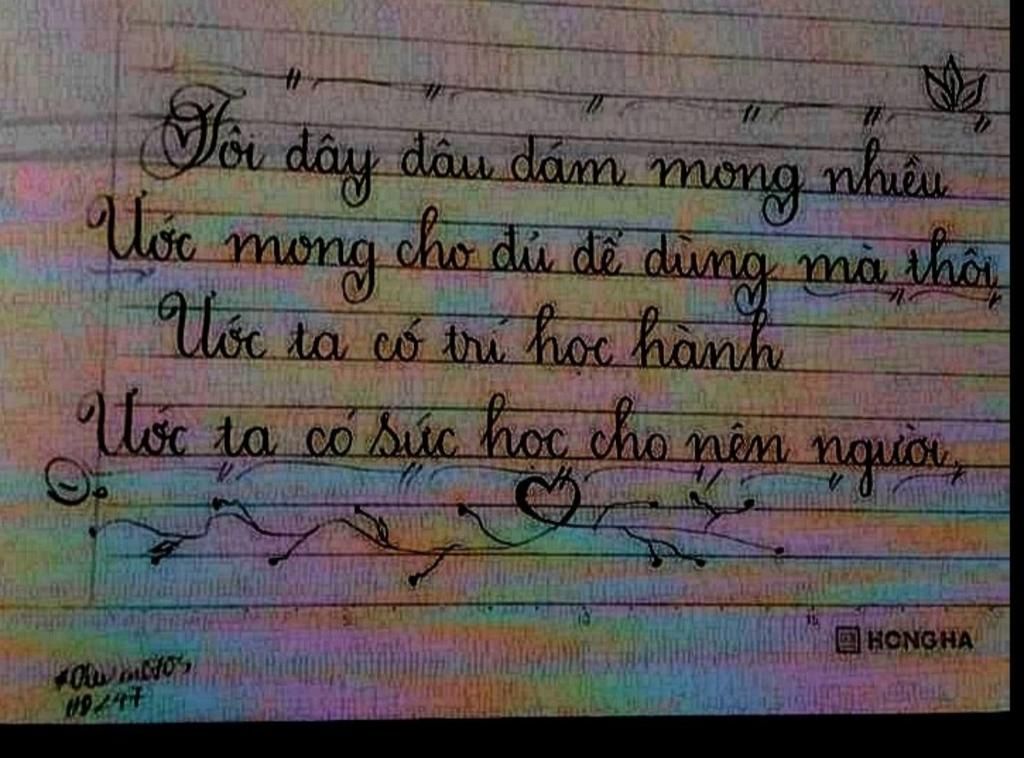 Tôi đây đâu dám mong nhiều
Ước mong cho đủ để dùng mà thôi,
Ước ta có trí học hành
Ước ta có sức học cho nên người,
5 10 15
HONG HA